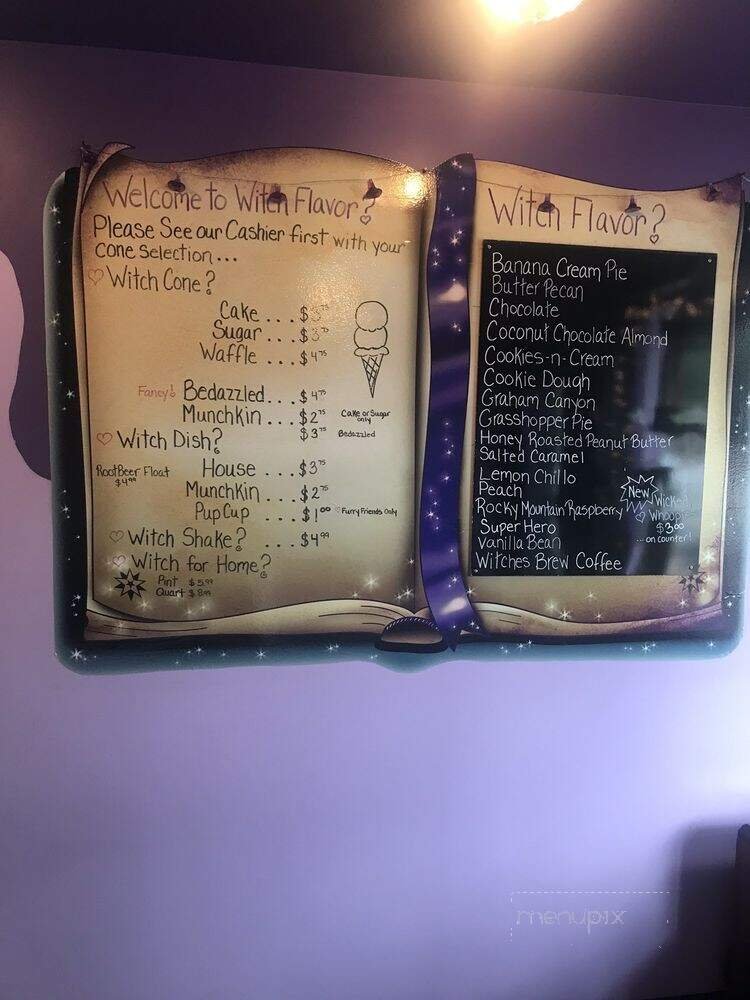 Welcome to Witch Flavor?
Please See our Cashier first with your
cone selection...
Witch Cone?
Cake ... $3.75
Sugar ... $3.75
Waffle ... $4.75
Fancy! Bedazzled ... $4.75
Munchkin ... $2.75 Cake or Sugar only
$3.75 Bedazzled
Witch Dish?
RootBeer Float
$4.99
House ... $3.75
Munchkin ... $2.75
Pup Cup ... $1.00 Furry Friends Only
Witch Shake? .... $4.99
Witch for Home?
Pint $5.99
Quart $8.99
Witch Flavor?
Banana Cream Pie
Butter Pecan
Chocolate
Coconut Chocolate Almond
Cookies-n-Cream
Cookie Dough
Graham Canyon
Grasshopper Pie
Honey Roasted Peanut Butter
Salted Caramel
Lemon Chillo
Peach
Rocky Mountain Raspberry
Super Hero
Vanilla Bean
Witches Brew Coffee
New
Wicked
$3.00
...on counter!
menupix